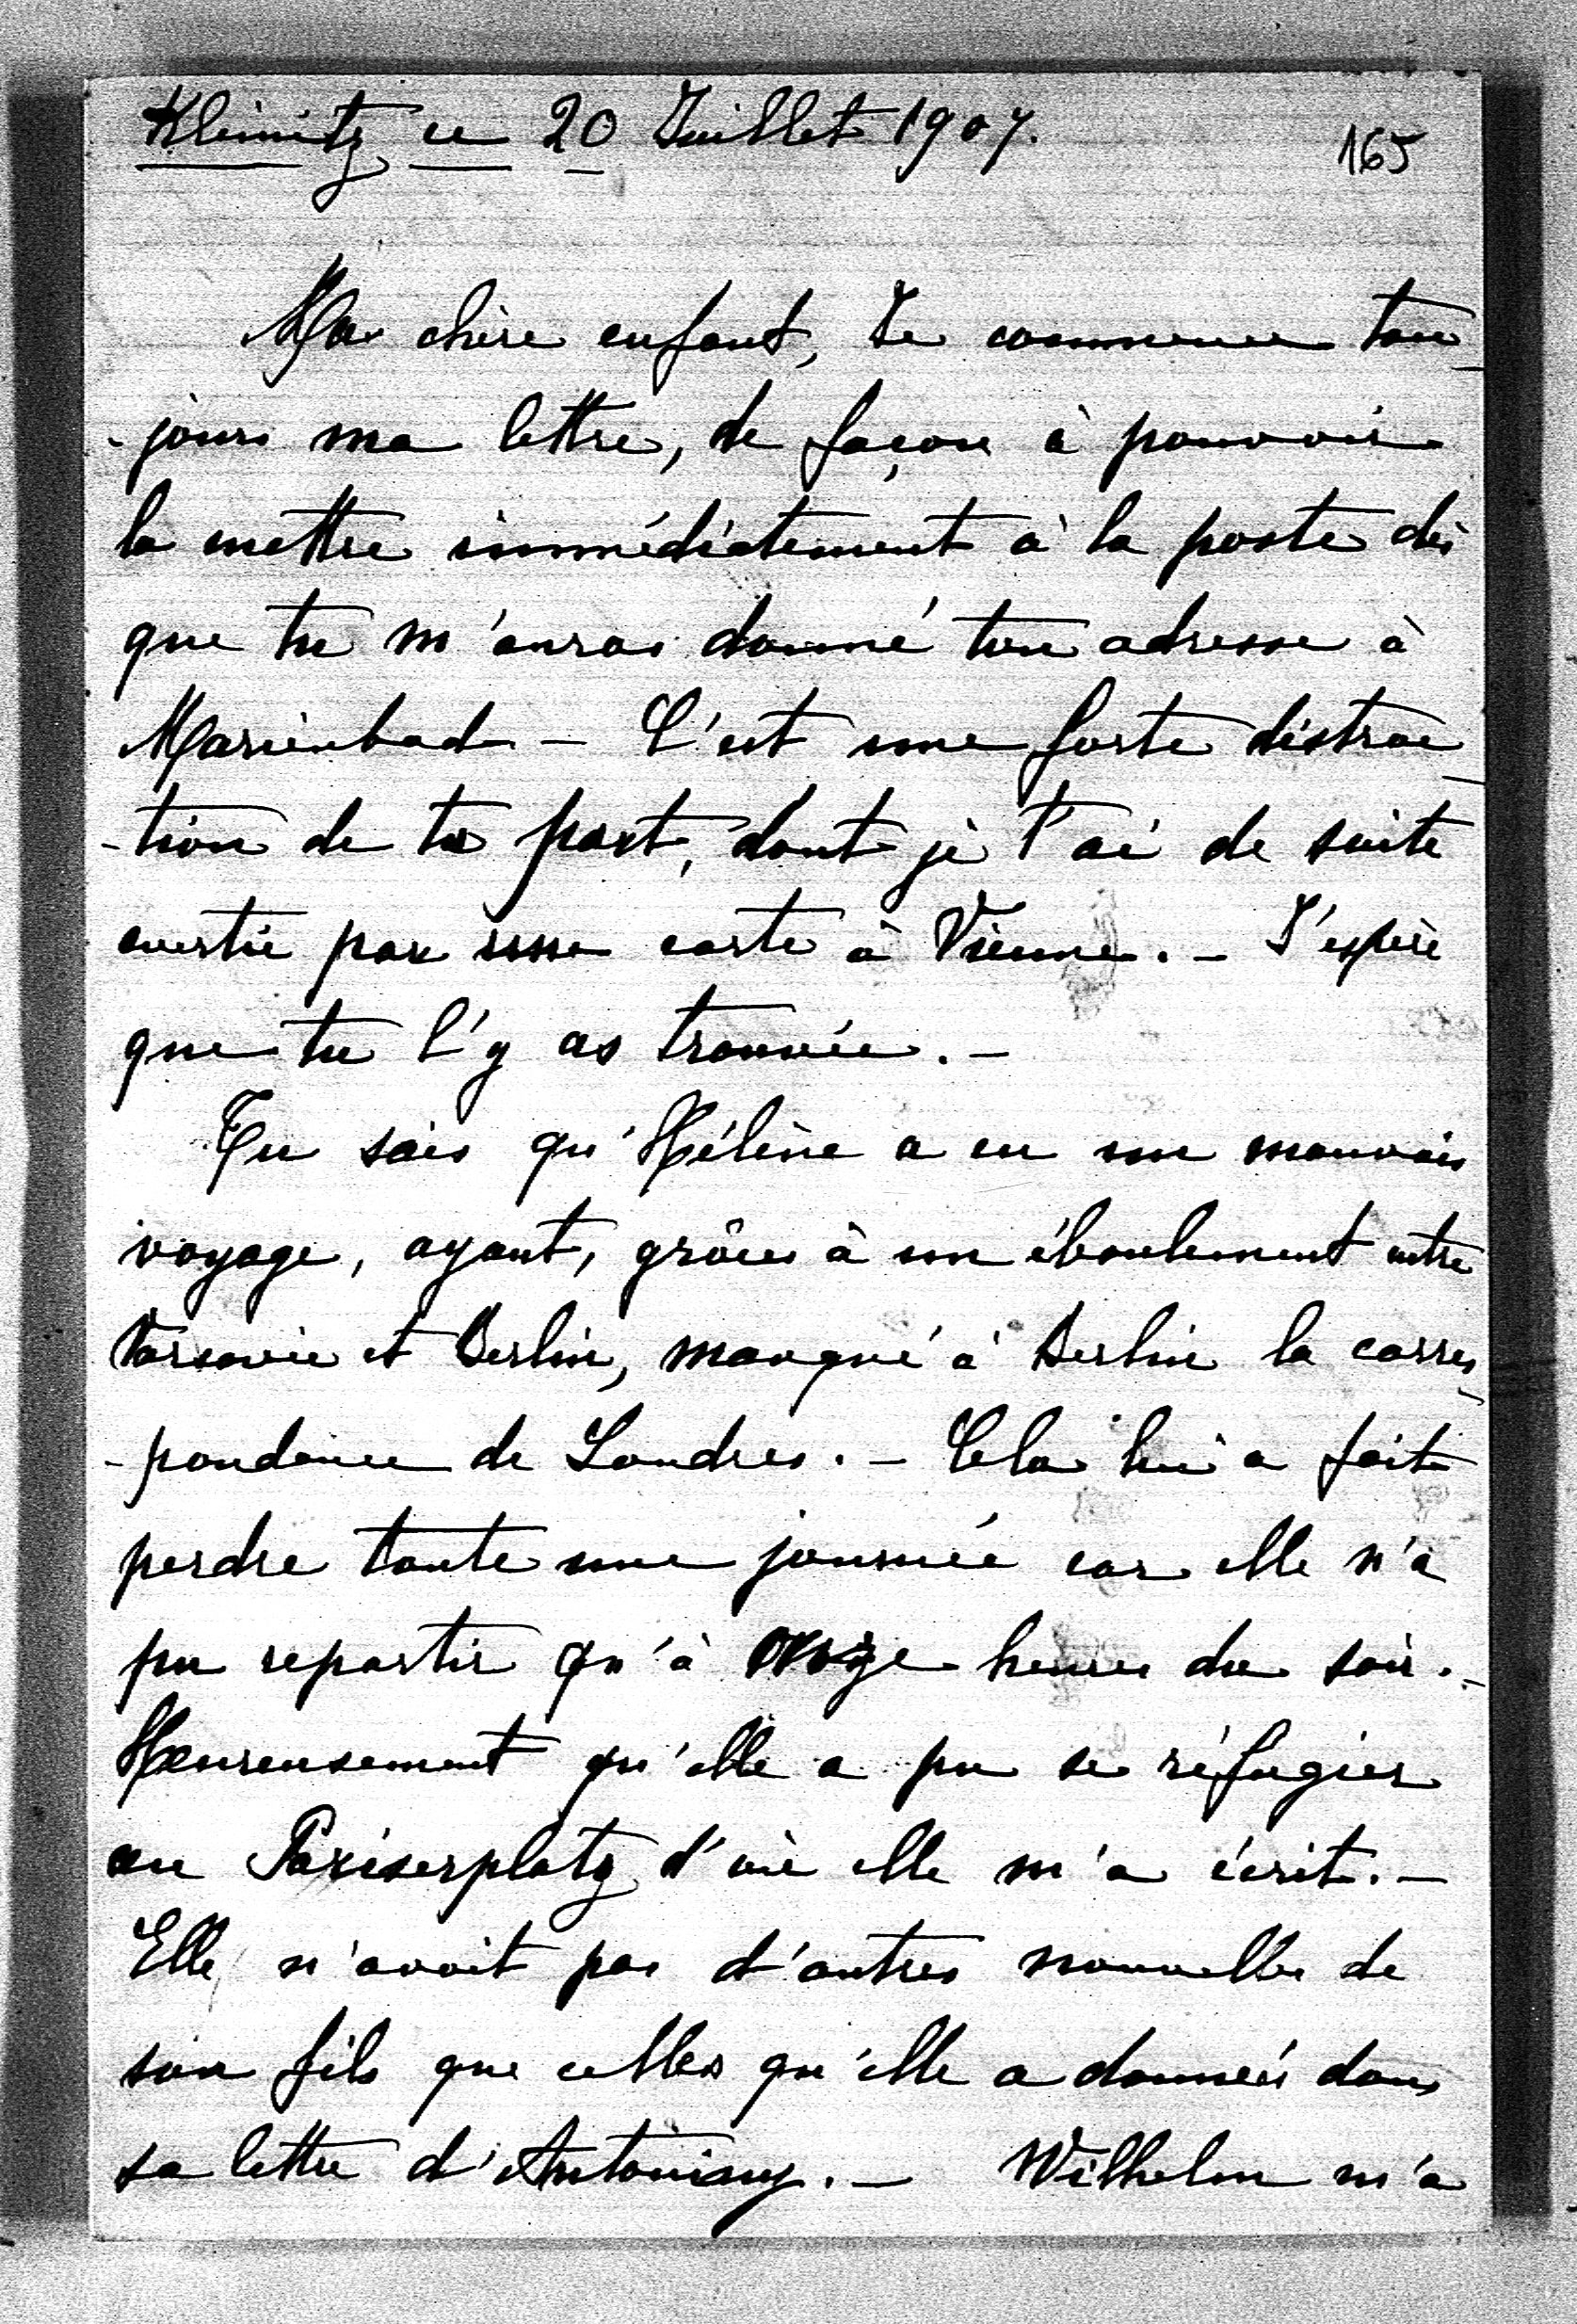 Klimitz ce 20 Juillet 1907.
165
Ma chère enfant, Je commence tou
-jours ma lettre, de façon à pouvoir
la mettre immédiatement à la poste dès
que tu m'auras donné ton adresse à
Marienbad - C'est une forte distrac
-tion de ta part, dont je t'ai de suite
avertie par une carte à Vienne. - J'espère
que tu l'y as trouvée. -
Tu sais qu'Hélène a eu un mauvais
voyage, ayant, grâce à un éboulement entre
Varsovie et Berlin, manqué à Berlin la corres
-pondance de Londres. - Cela lui a fait
perdre toute une journée car elle n'a
pu repartir qu'à onze heures du soir. -
Heureusement qu'elle a pu se réfugier
au Pariserplatz d'où elle m'a écrit. -
Elle n'avait pas d'autres nouvelles de
son fils que celles qu'elle a données dans
sa lettre d'Antoniny. - Wilhelm m'a